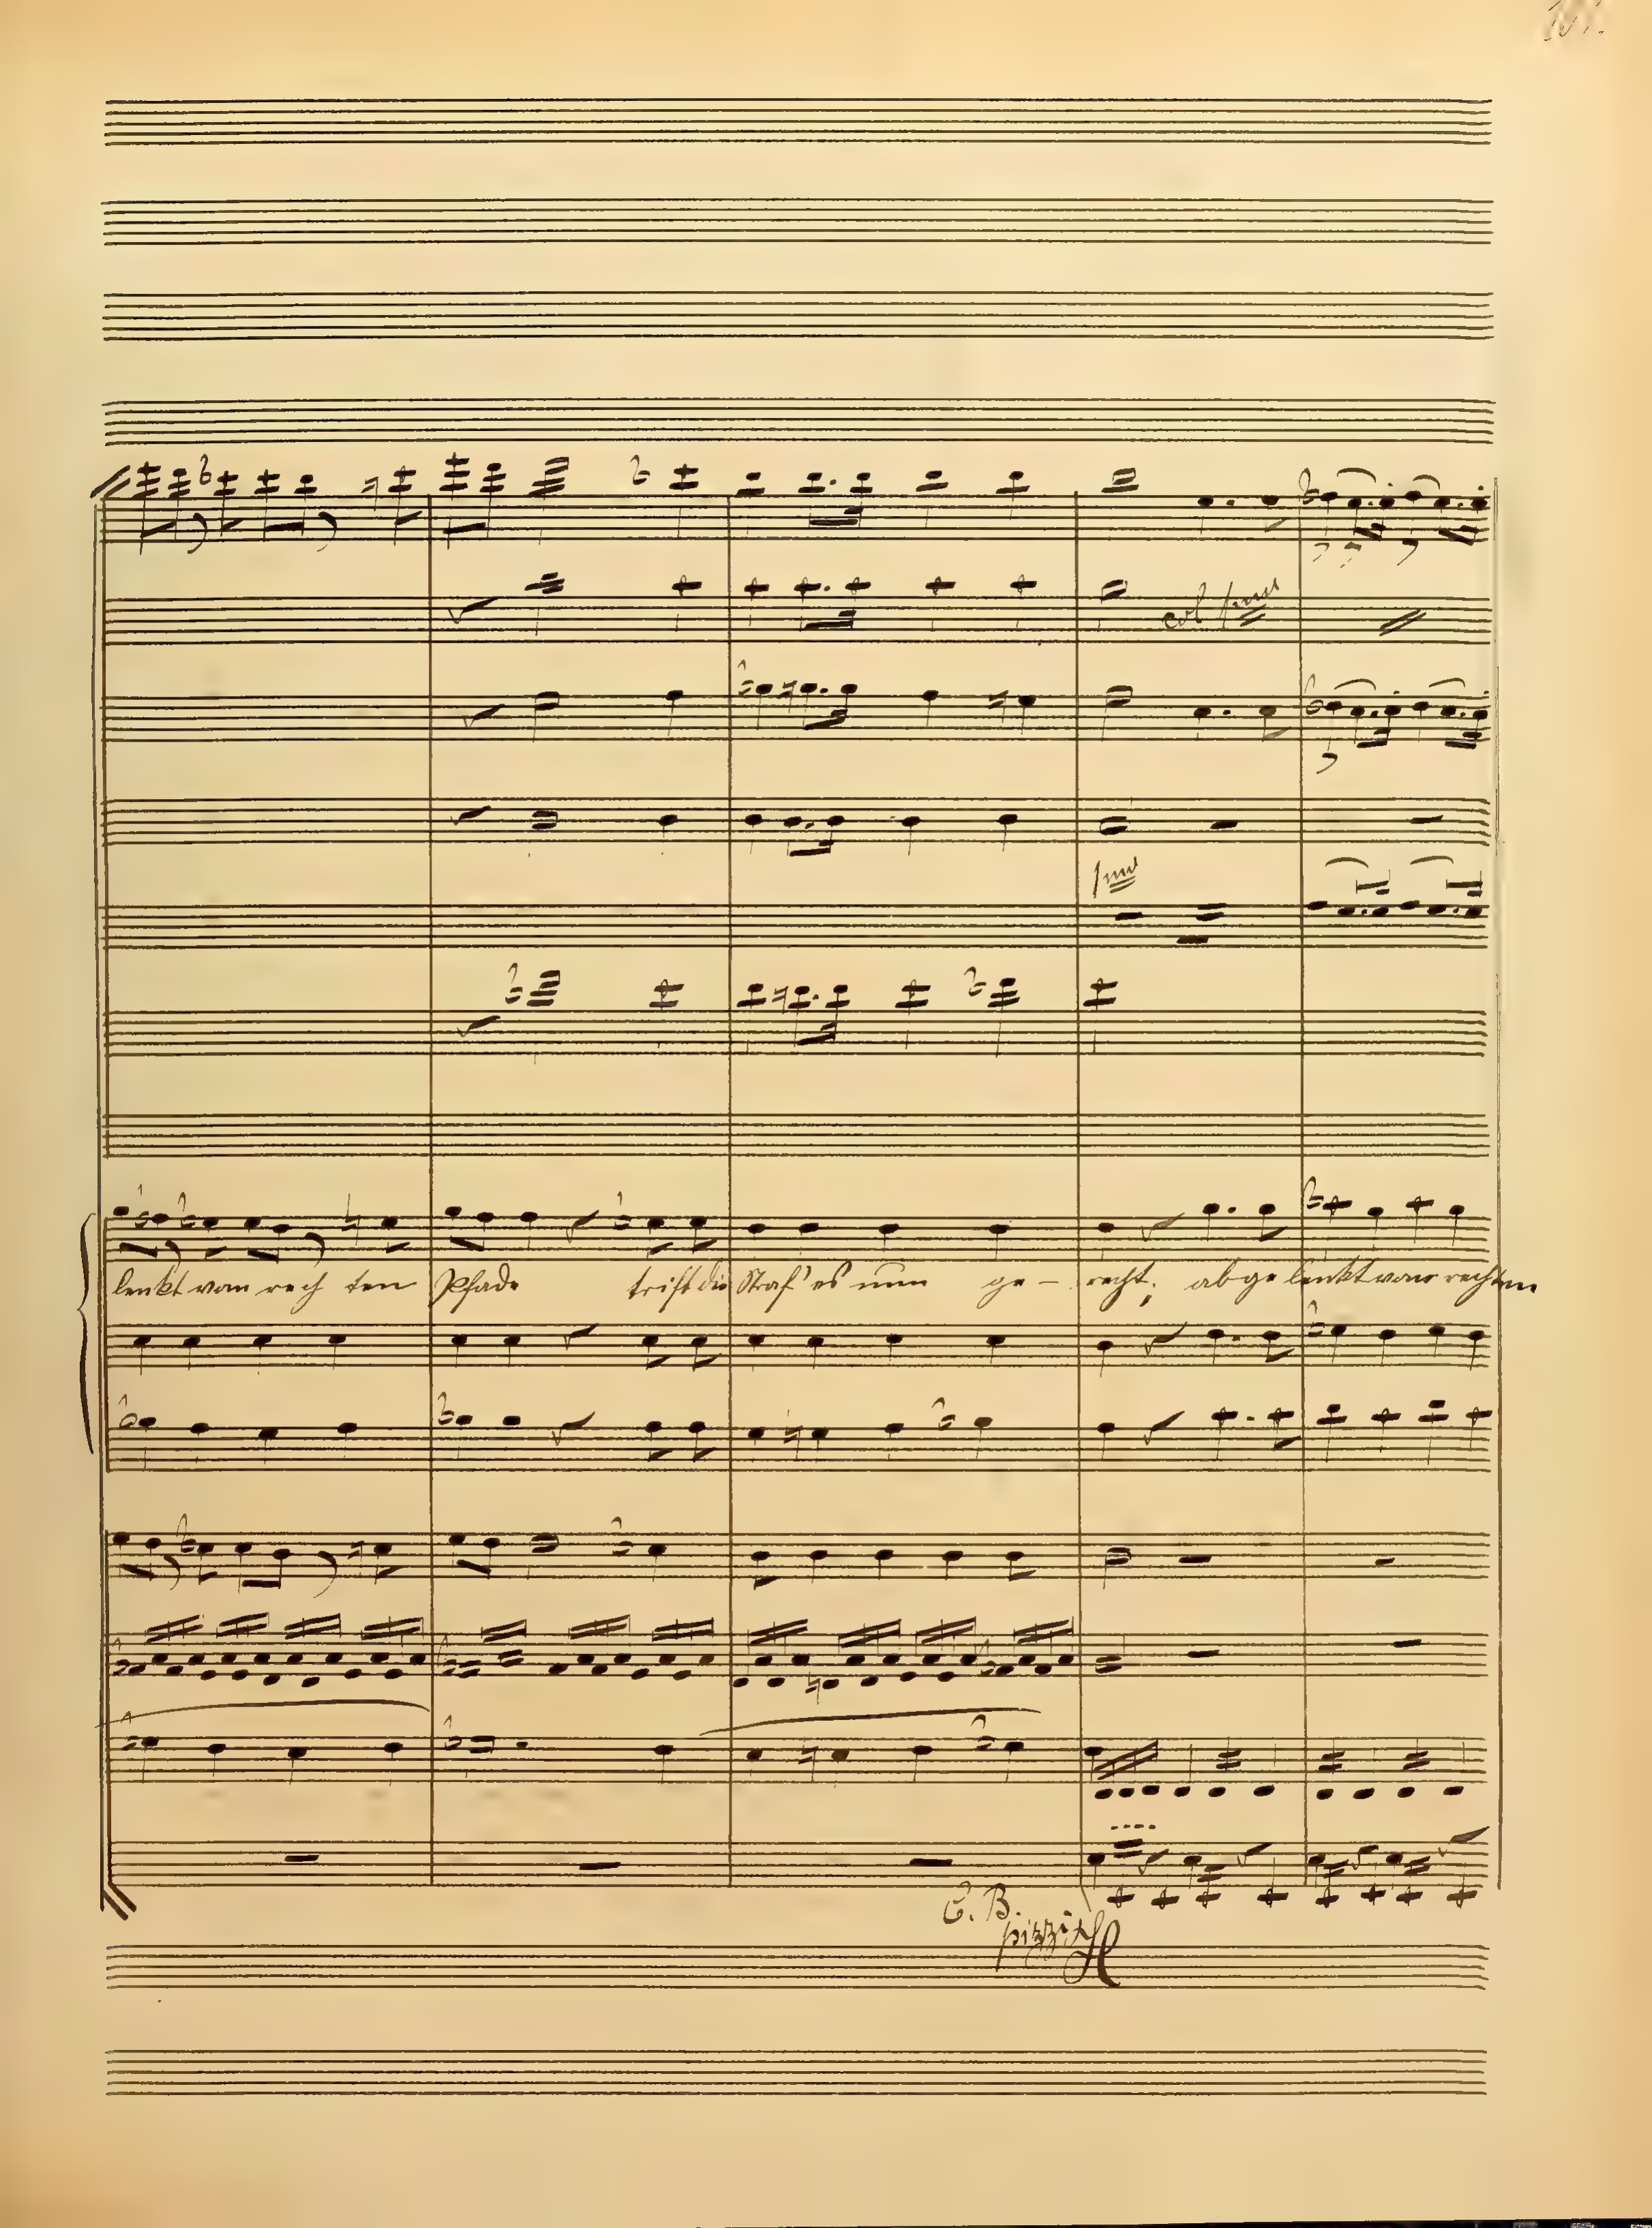 col 1mo
1mo
lenkt vom rech ten Pfade trift die Straf' es nun ge - recht; abge lenkt vom rechten
C. B.
pizzi